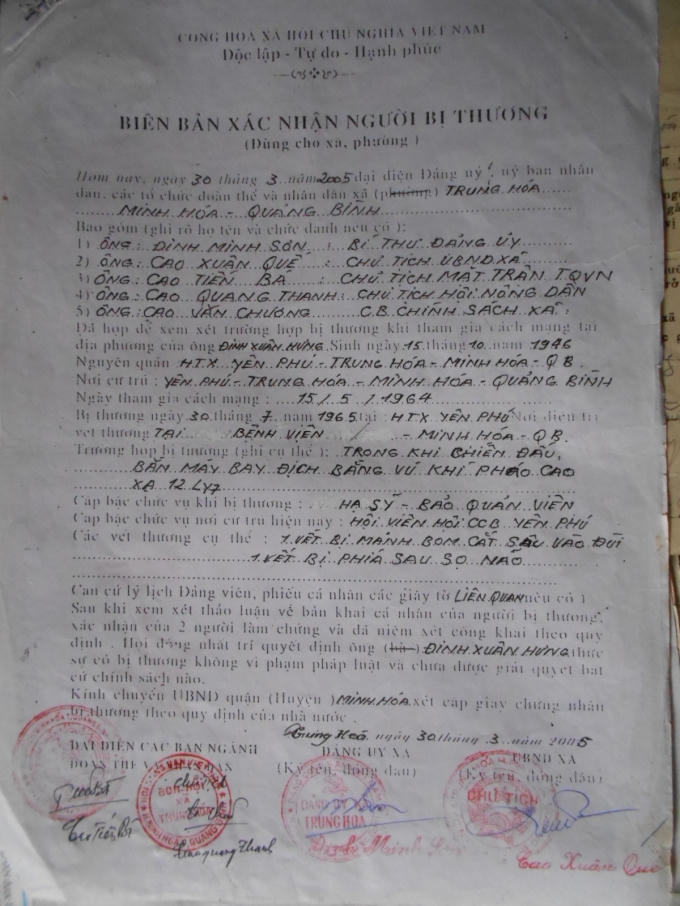 CỘNG HÒA XÃ HỘI CHỦ NGHĨA VIỆT NAM
Độc lập - Tự do - Hạnh phúc
BIÊN BẢN XÁC NHẬN NGƯỜI BỊ THƯƠNG
(Dùng cho xã, phường )
Hôm nay, ngày 30 tháng 3 năm 2005 đại diện Đảng uỷ, uỷ ban nhân
dân, các tổ chức đoàn thể và nhân dân xã (phường) TRUNG HÓA
MINH HÓA - QUẢNG BÌNH
Bao gồm (ghi rõ họ tên và chức danh nếu có ):
1) ÔNG: ĐINH MINH SƠN : BÍ THƯ ĐẢNG ỦY
2) ÔNG: CAO XUÂN QUẾ : CHỦ TỊCH UBND XÃ
3) ÔNG: CAO TIẾN BA : CHỦ TỊCH MẶT TRẬN TQVN
4) ÔNG: CAO QUANG THANH: CHỦ TỊCH HỘI NÔNG DÂN
5) ÔNG: CAO VĂN CHƯƠNG C.B. CHÍNH SÁCH XÃ:
Đã họp để xem xét trường hợp bị thương khi tham gia cách mạng tại
địa phương của ông ĐINH XUÂN HƯNG Sinh ngày 15 tháng 10 năm 1946
Nguyên quán HTX YÊN PHÚ - TRUNG HÓA - MINH HÓA - QB.
Nơi cư trú : YÊN PHÚ - TRUNG HÓA - MINH HÓA - QUẢNG BÌNH
Ngày tham gia cách mạng : 15 / 5 / 1964
Bị thương ngày 30 tháng 7 năm 1965 tại : HTX YÊN PHÚ Nơi điều trị
vết thương TẠI BỆNH VIỆN - MINH HÓA - QB.
Trường hợp bị thương (ghi cụ thể ): TRONG KHI CHIẾN ĐẤU,
BẮN MÁY BAY ĐỊCH BẰNG VŨ KHÍ PHÁO CAO
XẠ 12 LY7
Cấp bậc chức vụ khi bị thương : HẠ SỸ - BẢO QUẢN VIÊN
Cấp bậc chức vụ nơi cư trú hiện nay : HỘI VIÊN HỘI CCB YÊN PHÚ
Các vết thương cụ thể : 1. VẾT BỊ MẢNH BOM CẮT SÂU VÀO ĐÙI
1. VẾT BỊ PHÍA SAU SỌ NÃO
Căn cứ lý lịch Đảng viên, phiếu cá nhân các giấy tờ LIÊN QUAN nếu có )
Sau khi xem xét thảo luận về bản khai cá nhân của người bị thương,
xác nhận của 2 người làm chứng và đã niêm xét công khai theo quy
định . Hội đồng nhất trí quyết định ông (bà) ĐINH XUÂN HƯNG thực
sự có bị thương không vi phạm pháp luật và chưa được giải quyết bất
cứ chính sách nào.
Kính chuyển UBND quận (Huyện ) MINH HÓA xét cấp giấy chứng nhận
bị thương theo quy định của nhà nước .
Trung Hoá ngày 30 tháng 3 năm 2005
ĐẠI DIỆN CÁC BAN NGÀNH ĐẢNG UỶ XÃ UBND XÃ
(Ký tên, đóng dấu) (Ký tên, đóng dấu)
XÃ
TRUNG HÓA
ĐẢNG ỦY XÃ
TRUNG HÓA
CHỦ TỊCH
Cao Tiến Ba
Cao Quang Thanh
Đinh Minh Sơn
Cao Xuân Quế